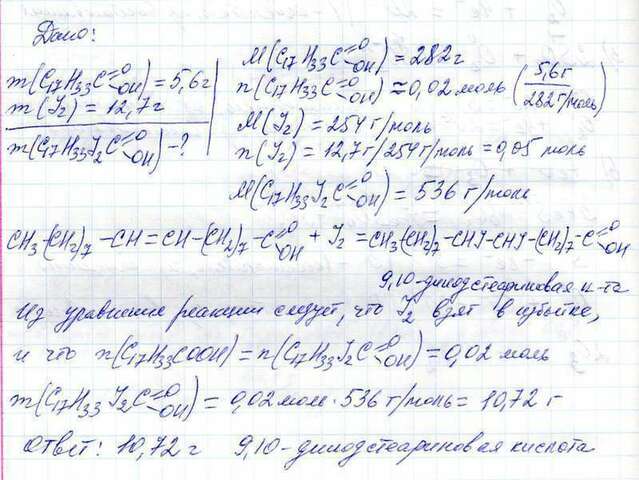 Дано:
m(C17H33C=O-OH) = 5,6г
m(J2) = 12,7г
m(C17H33J2C=O-OH) - ?
M(C17H33C=O-OH) = 282г
n(C17H33C=O-OH) ≈ 0,02 моль (5,6г/282г/моль)
M(J2) = 254 г/моль
n(J2) = 12,7г/254г/моль = 0,05 моль
M(C17H33J2C=O-OH) = 536 г/моль
CH3-(CH2)7-CH=CH-(CH2)7-C=O-OH + J2 = CH3-(CH2)7-CHJ-CHJ-(CH2)7-C=O-OH
9,10-дииодстеариновая к-та
Из уравнения реакции следует, что J2 взят в избытке,
и что n(C17H33COOH) = n(C17H33J2C=O-OH) = 0,02 моль
m(C17H33J2C=O-OH) = 0,02 моль · 536 г/моль = 10,72 г
Ответ: 10,72 г 9,10-дииодстеариновая кислота